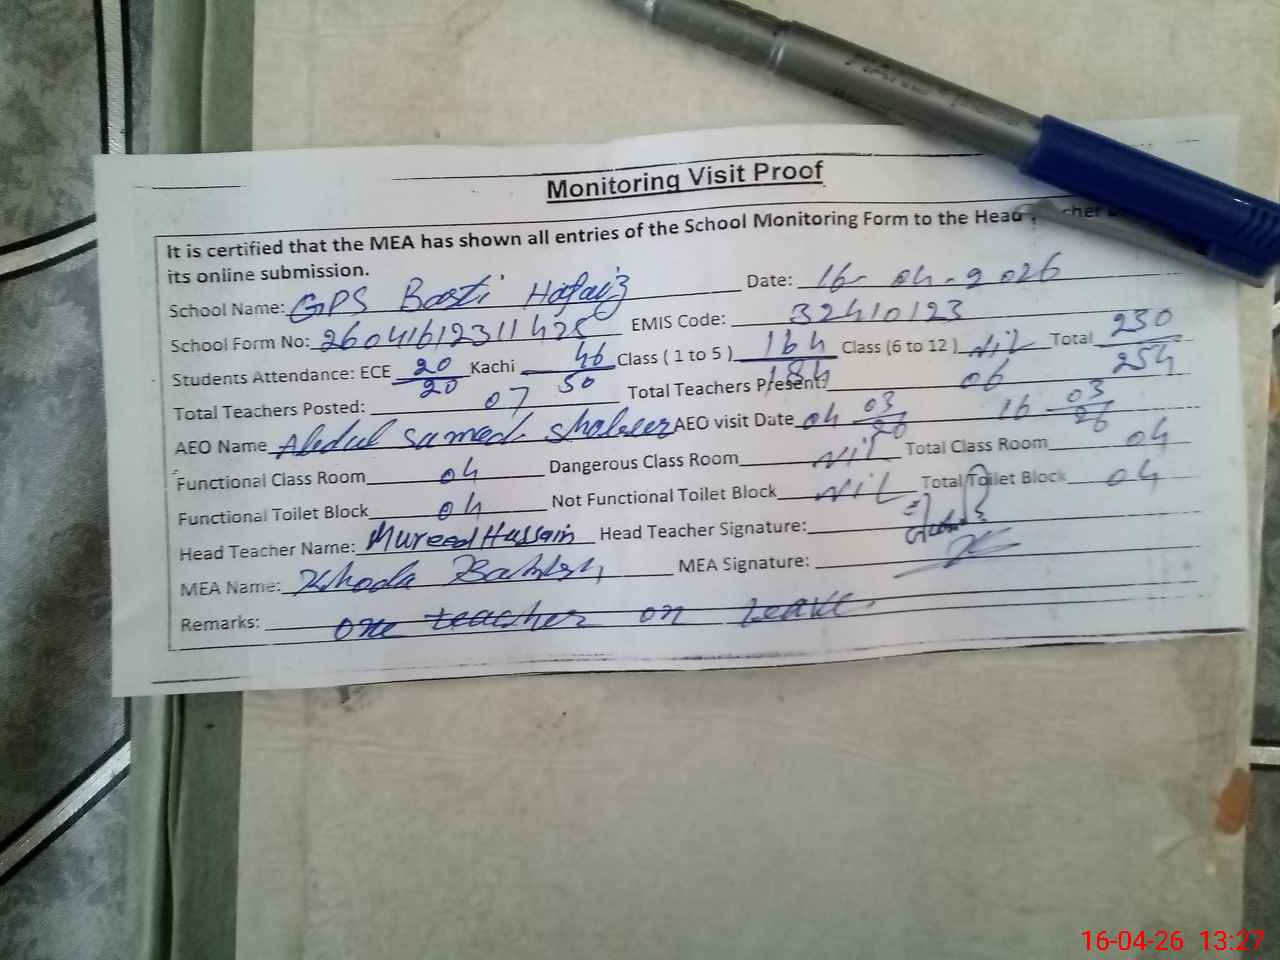 Monitoring Visit Proof
It is certified that the MEA has shown all entries of the School Monitoring Form to the Head
its online submission.
School Name: GPS Basti Hafaiz Date: 16-04-2026
School Form No: 26041612311425 EMIS Code: 32410123
Students Attendance: ECE 20/20 Kachi 46/50 Class ( 1 to 5 ) 164/184 Class (6 to 12 ) NIL Total 230/254
Total Teachers Posted: 07 Total Teachers Present: 06
AEO Name Abdul Samad AEO visit Date 04 03/26 16-03/26
Functional Class Room 04 Dangerous Class Room Nil Total Class Room 04
Functional Toilet Block 04 Not Functional Toilet Block NIL Total Toilet Block 04
Head Teacher Name: Mureed Hussain Head Teacher Signature:
MEA Name: Khoda Bakhsh MEA Signature:
Remarks: one teacher on Leave.
16-04-26 13:27